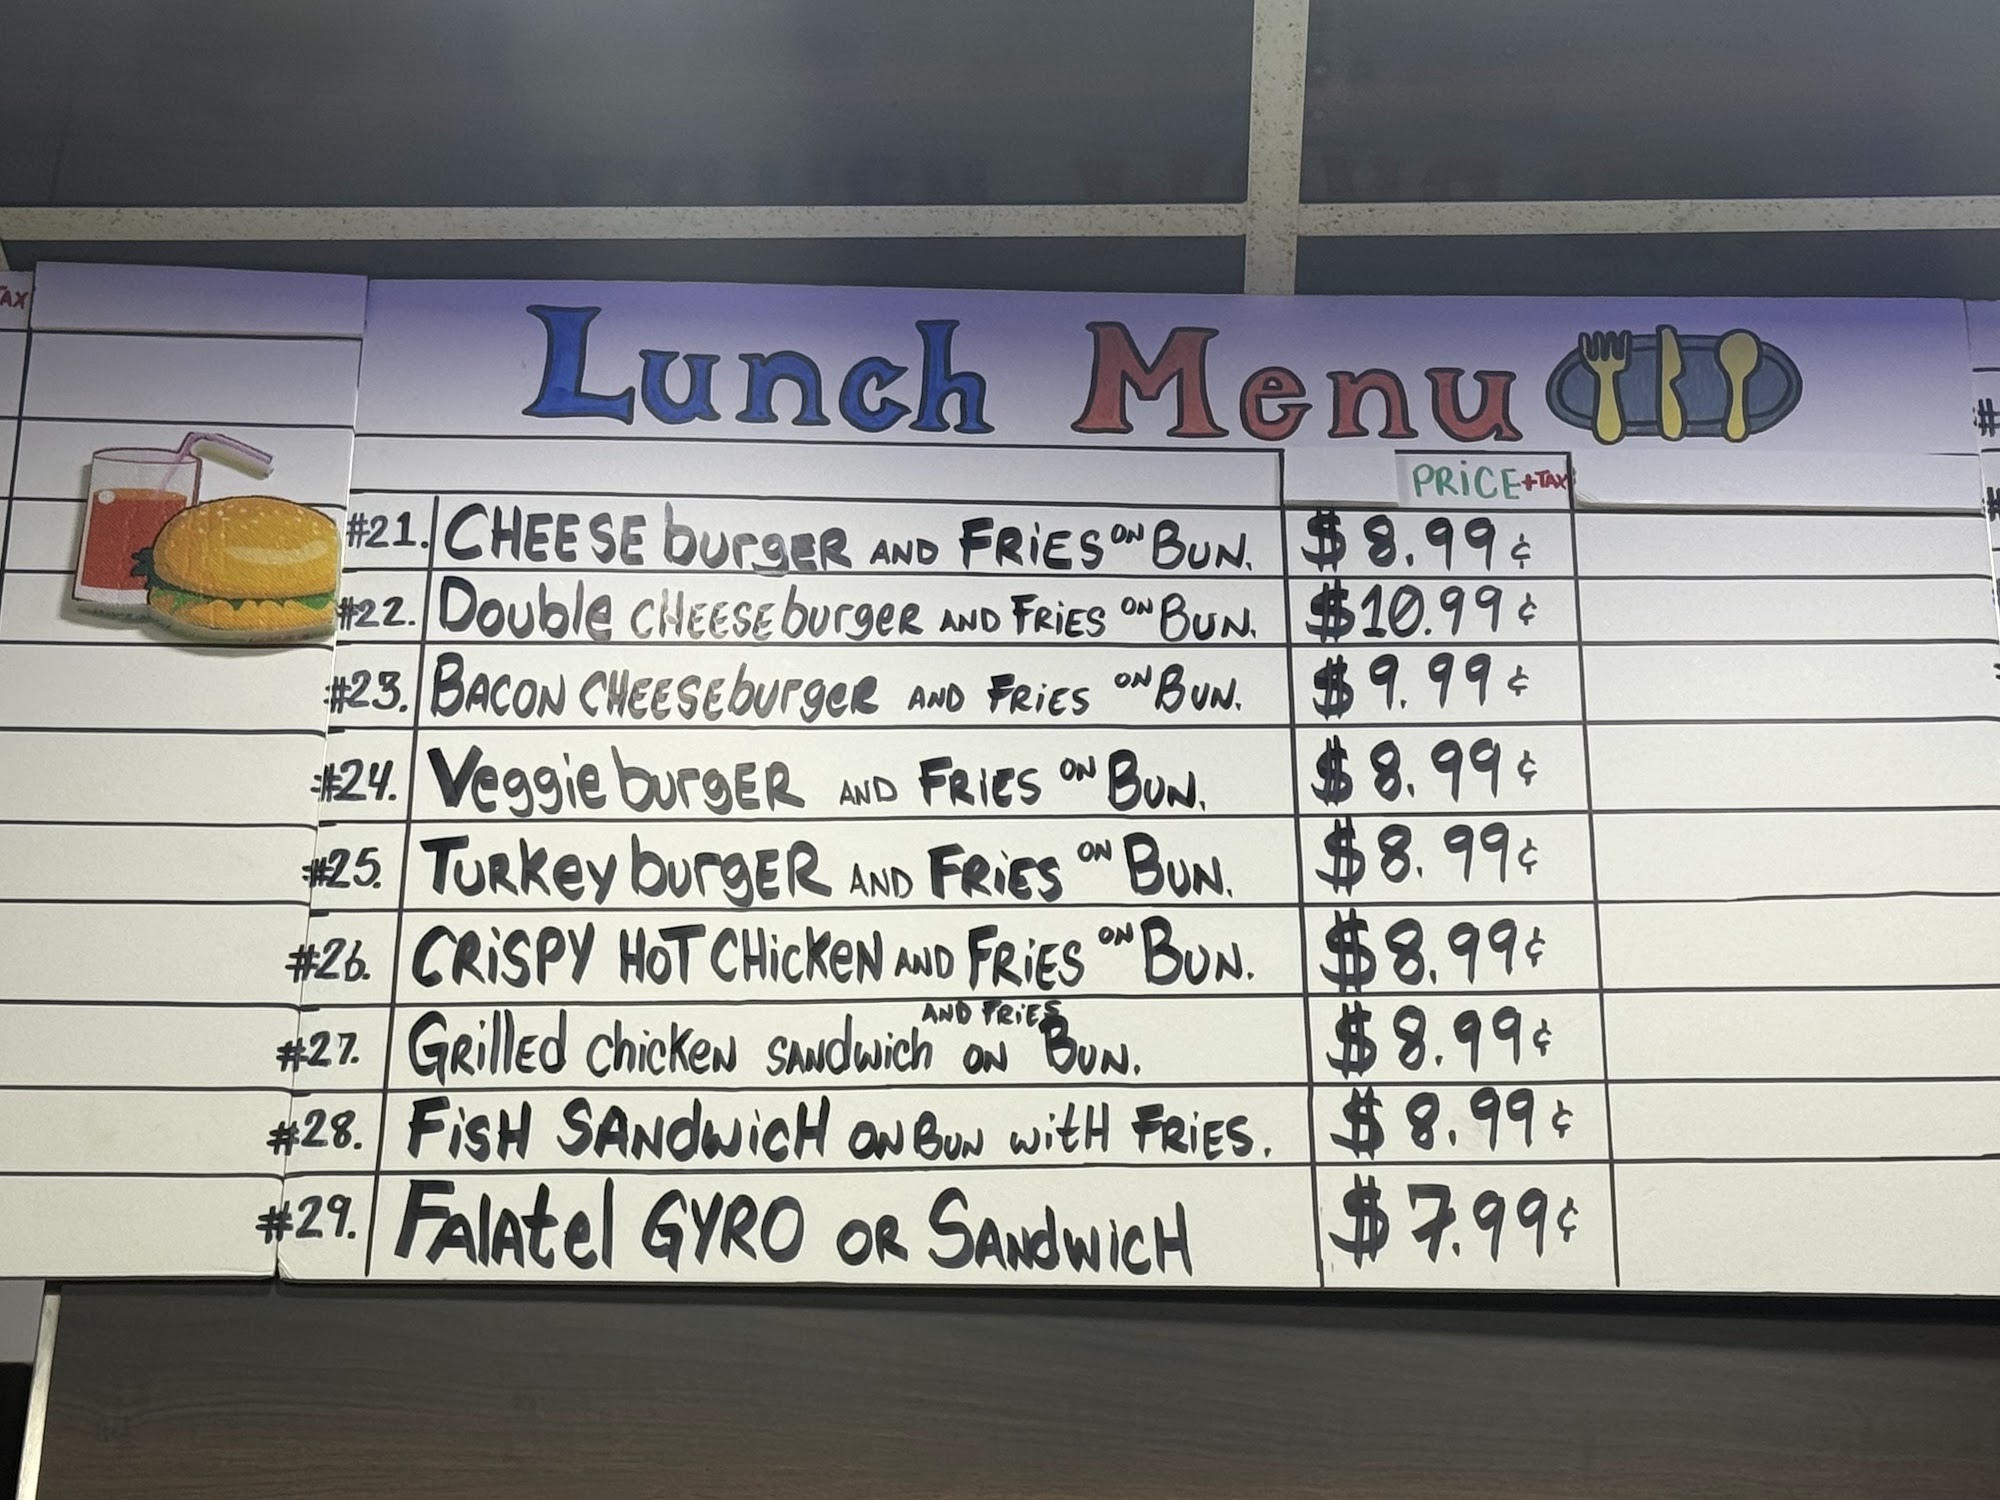 TAX
Lunch Menu
PRICE +TAX
#21. CHEESE burgER AND FRiES ON BUN. $ 8.99 ¢
#22. Double CHEESE burgER AND FRiES ON BUN. $10.99 ¢
#23. BACON CHEESE burgeR AND FRiES ON BUN. $ 9.99 ¢
#24. Veggie burgER AND FRiES ON BUN. $ 8.99 ¢
#25. TURKey burgER AND FRiES ON BUN. $ 8.99 ¢
#26. CRiSPY HOT CHicKeN AND FRiES ON BUN. $8.99 ¢
AND FRiES
#27. GRilled chicKeN SANdwich ON BUN. $ 8.99 ¢
#28. FiSH SANdwicH ON BUN witH FRiES. $ 8.99 ¢
#29. FAlAtel GYRO OR SANdwicH $ 7.99 ¢